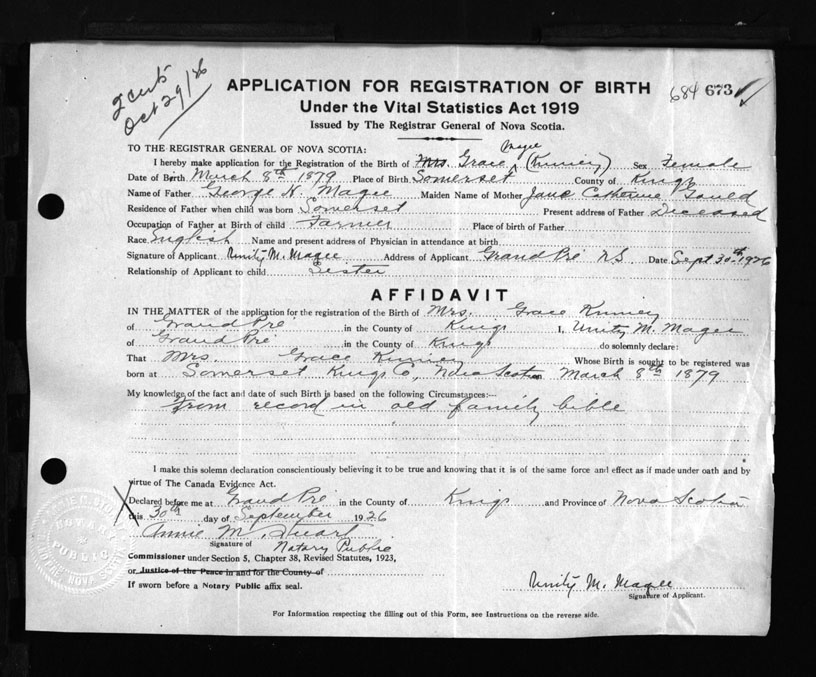 Oct 29/26
APPLICATION FOR REGISTRATION OF BIRTH
684 673
Under the Vital Statistics Act 1919
Issued by The Registrar General of Nova Scotia.
TO THE REGISTRAR GENERAL OF NOVA SCOTIA:
Magee
I hereby make application for the Registration of the Birth of Mrs. Grace (Kinney) Sex Female
Date of Birth March 8th 1879 Place of Birth Somerset County of Kings
Name of Father George N. Magee Maiden Name of Mother Jane Catherine Gould
Residence of Father when child was born Somerset Present address of Father Deceased
Occupation of Father at Birth of child Farmer Place of birth of Father
Race English Name and present address of Physician in attendance at birth
Signature of Applicant Unity M. Magee Address of Applicant Grand Pré N.S. Date Sept 30th 1926
Relationship of Applicant to child Sister
AFFIDAVIT
IN THE MATTER of the application for the registration of the Birth of Mrs. Grace Kinney
of Grand Pré in the County of Kings I, Unity M. Magee
of Grand Pré in the County of Kings do solemnly declare:
That Mrs. Grace Kinney Whose Birth is sought to be registered was
born at Somerset Kings Co, Nova Scotia March 8th 1879
My knowledge of the fact and date of such Birth is based on the following Circumstances:—
From record in old family bible
I make this solemn declaration conscientiously believing it to be true and knowing that it is of the same force and effect as if made under oath and by
virtue of The Canada Evidence Act.
Declared before me at Grand Pré in the County of Kings and Province of Nova Scotia
this 30th day of September 1926
Annie M. Stuart
Signature of Notary Public
Commissioner under Section 5, Chapter 38, Revised Statutes, 1923,
or Justice of the Peace in and for the County of
If sworn before a Notary Public affix seal.
Unity M. Magee
Signature of Applicant.
For Information respecting the filling out of this Form, see Instructions on the reverse side.
NOTARY
PUBLIC
NOVA SCOTIA